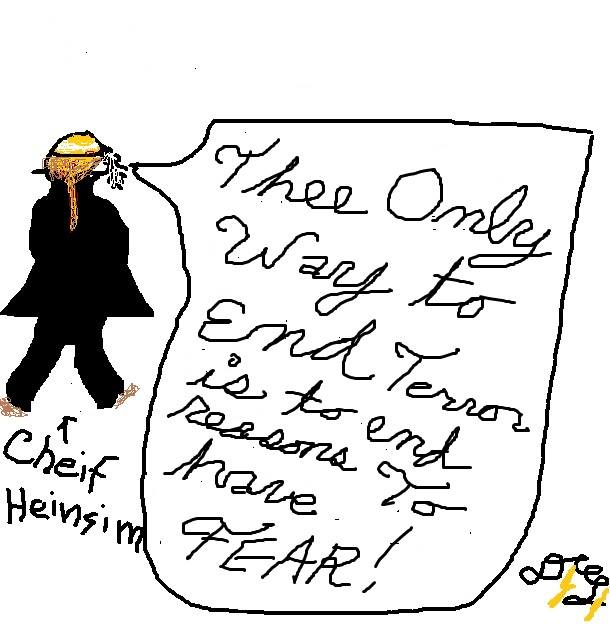 Thee Only
Way to
End Terror
is to end
reasons To
have
FEAR!
Cheif
Heinsim